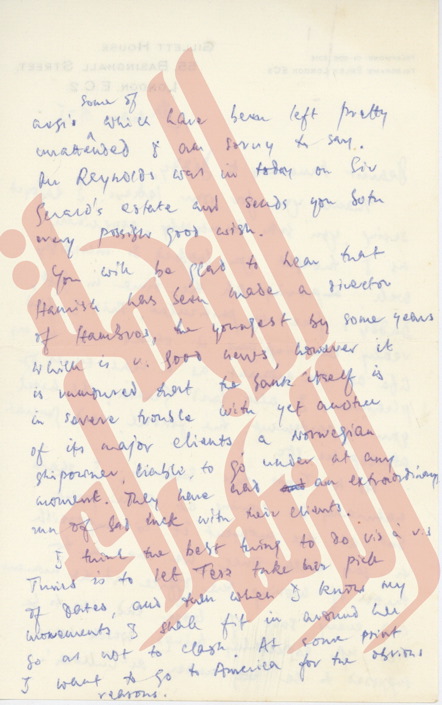 some of
avgis which have been left pretty
unattended I am sorry to say.
Mr Reynolds was in today on Sir
Gerard's estate and sends you both
every possible good wish.
You will be glad to hear that
Hamish has been made a director
of Hambros, the youngest by some years
which is v. good news however it
is rumoured that the bank itself is
in severe trouble with yet another
of its major clients a Norwegian
shipowner, liable, to go under at any
moment. They have had an extraordinary
run of bad luck with their clients.
I think the best thing to do vis à vis
Tunis is to let Tess take her pick
of dates, and then when I know my
movements I shall fit in around her
so as not to clash. At some point
I want to go to America for the obvious
reasons.